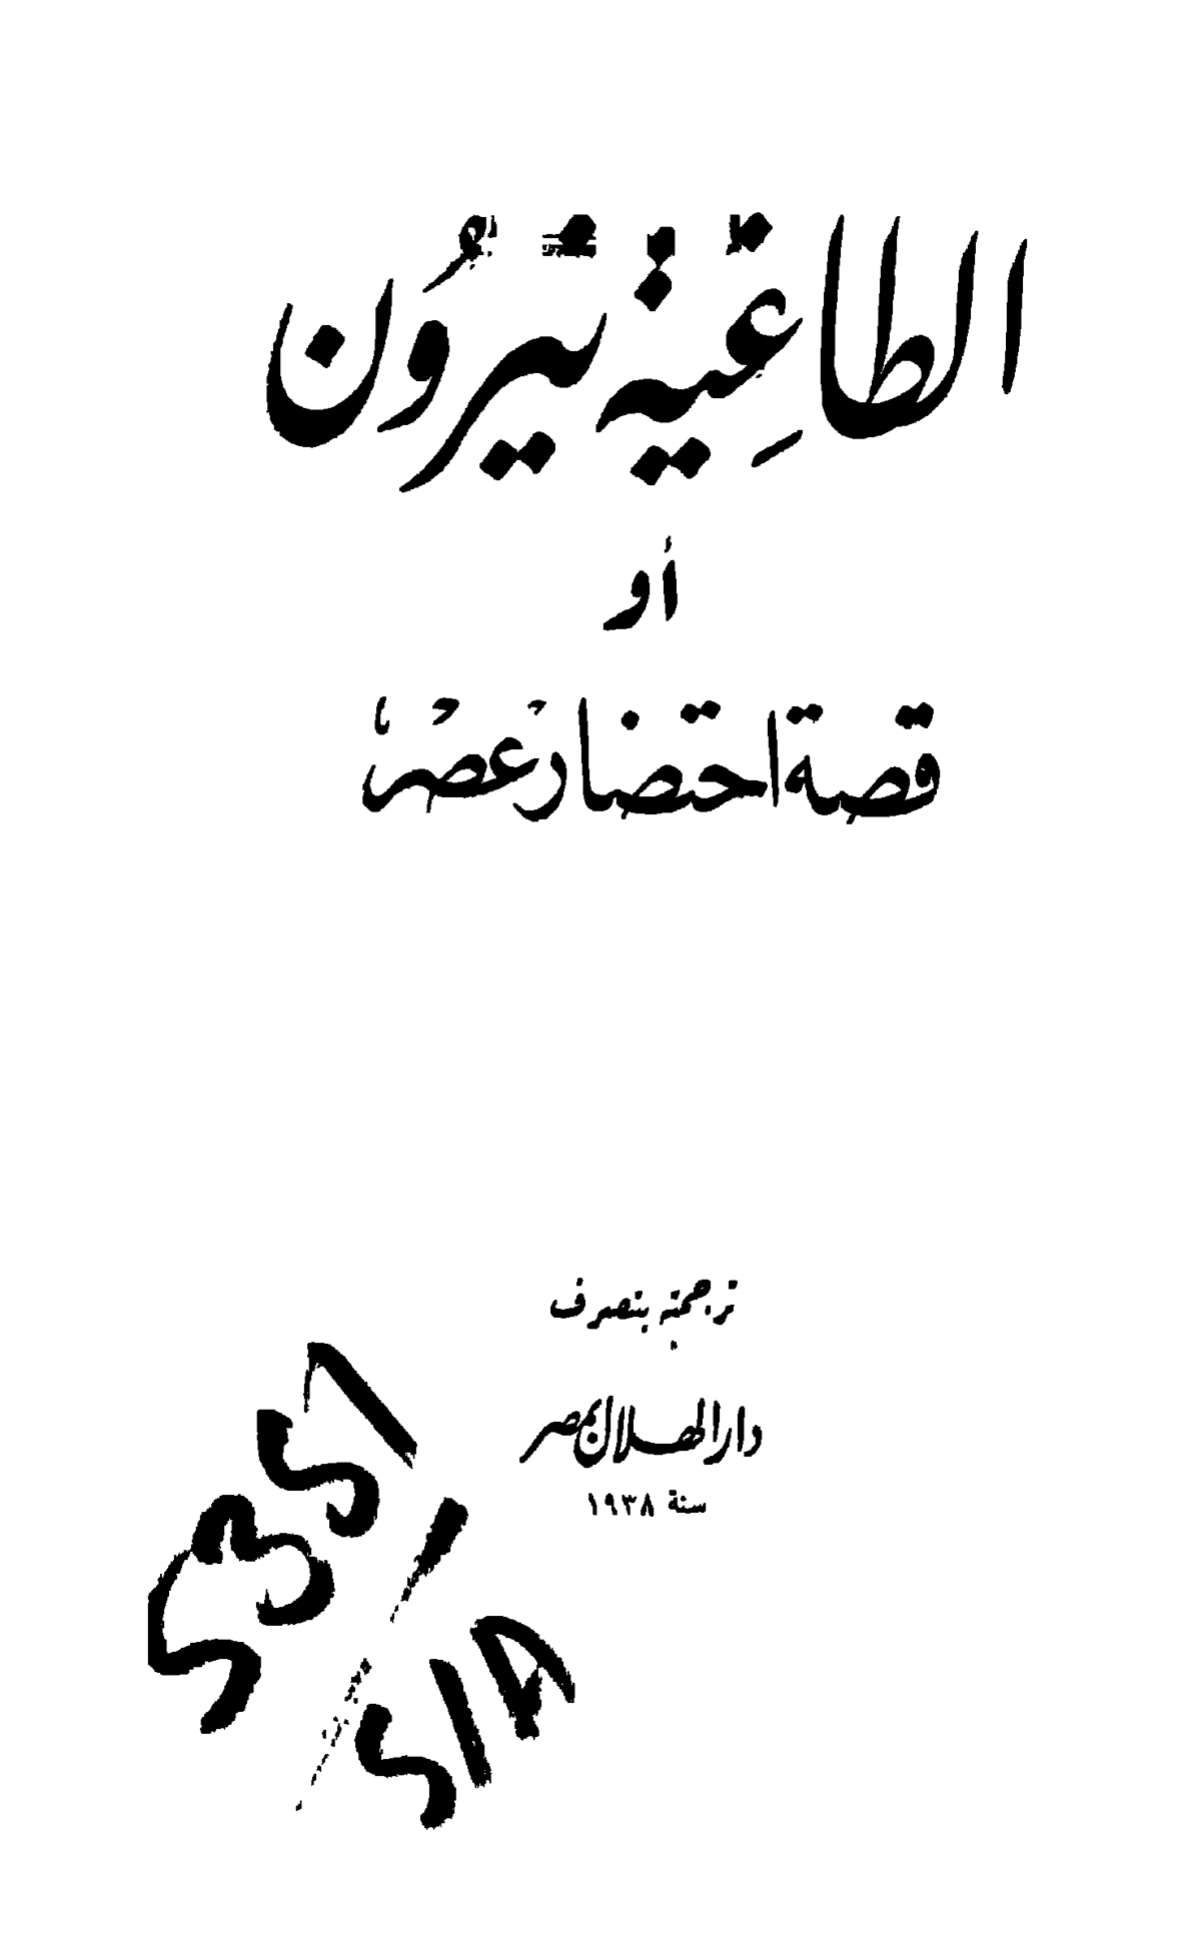 الطاغِية نَيرُون
أو
قصة احتضار عصر
ترجمة بتصرف
دار الهلال بمصر
سنة ١٩٣٨